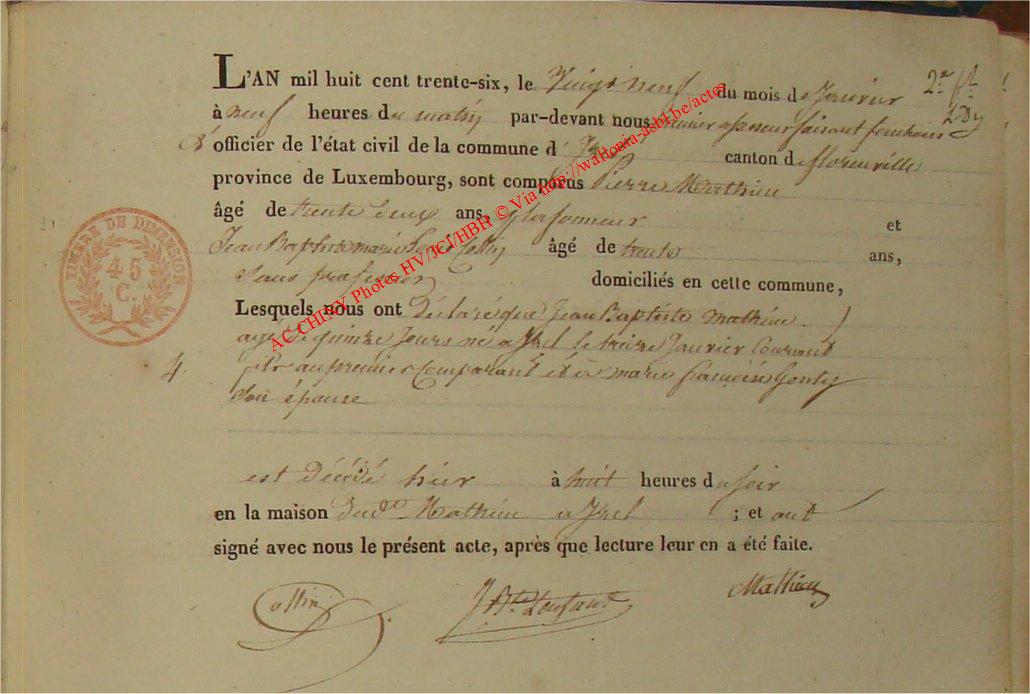 L'AN mil huit cent trente-six, le Vingt neuf du mois de Janvier
à neuf heures du matin par-devant nous premier assesseur faisant fonctions
d'officier de l'état civil de la commune d'Izel canton de florenville
province de Luxembourg, sont comparus Pierre Mathieu
âgé de trente deux ans, plafonneur et
Jean Baptiste marie Collin âgé de trente ans,
Sans profession domiciliés en cette commune,
Lesquels nous ont déclaré que Jean Baptiste Mathieu
agé de quinze Jours né a Izel le treize Janvier Courant
fils au premier Comparant et à marie françoise Gonty
Son épouse
est décédé hier à huit heures du soir
en la maison dud.t Mathieu a Izel ; et ont
signé avec nous le présent acte, après que lecture leur en a été faite.
Collin J Bte Mathieu
4.
2e
TIMBRE DE DIMENSION
45
C.
AC CHINY Photos HV/JCJ/HBH © Via http://wallonia-asbl.be/actes